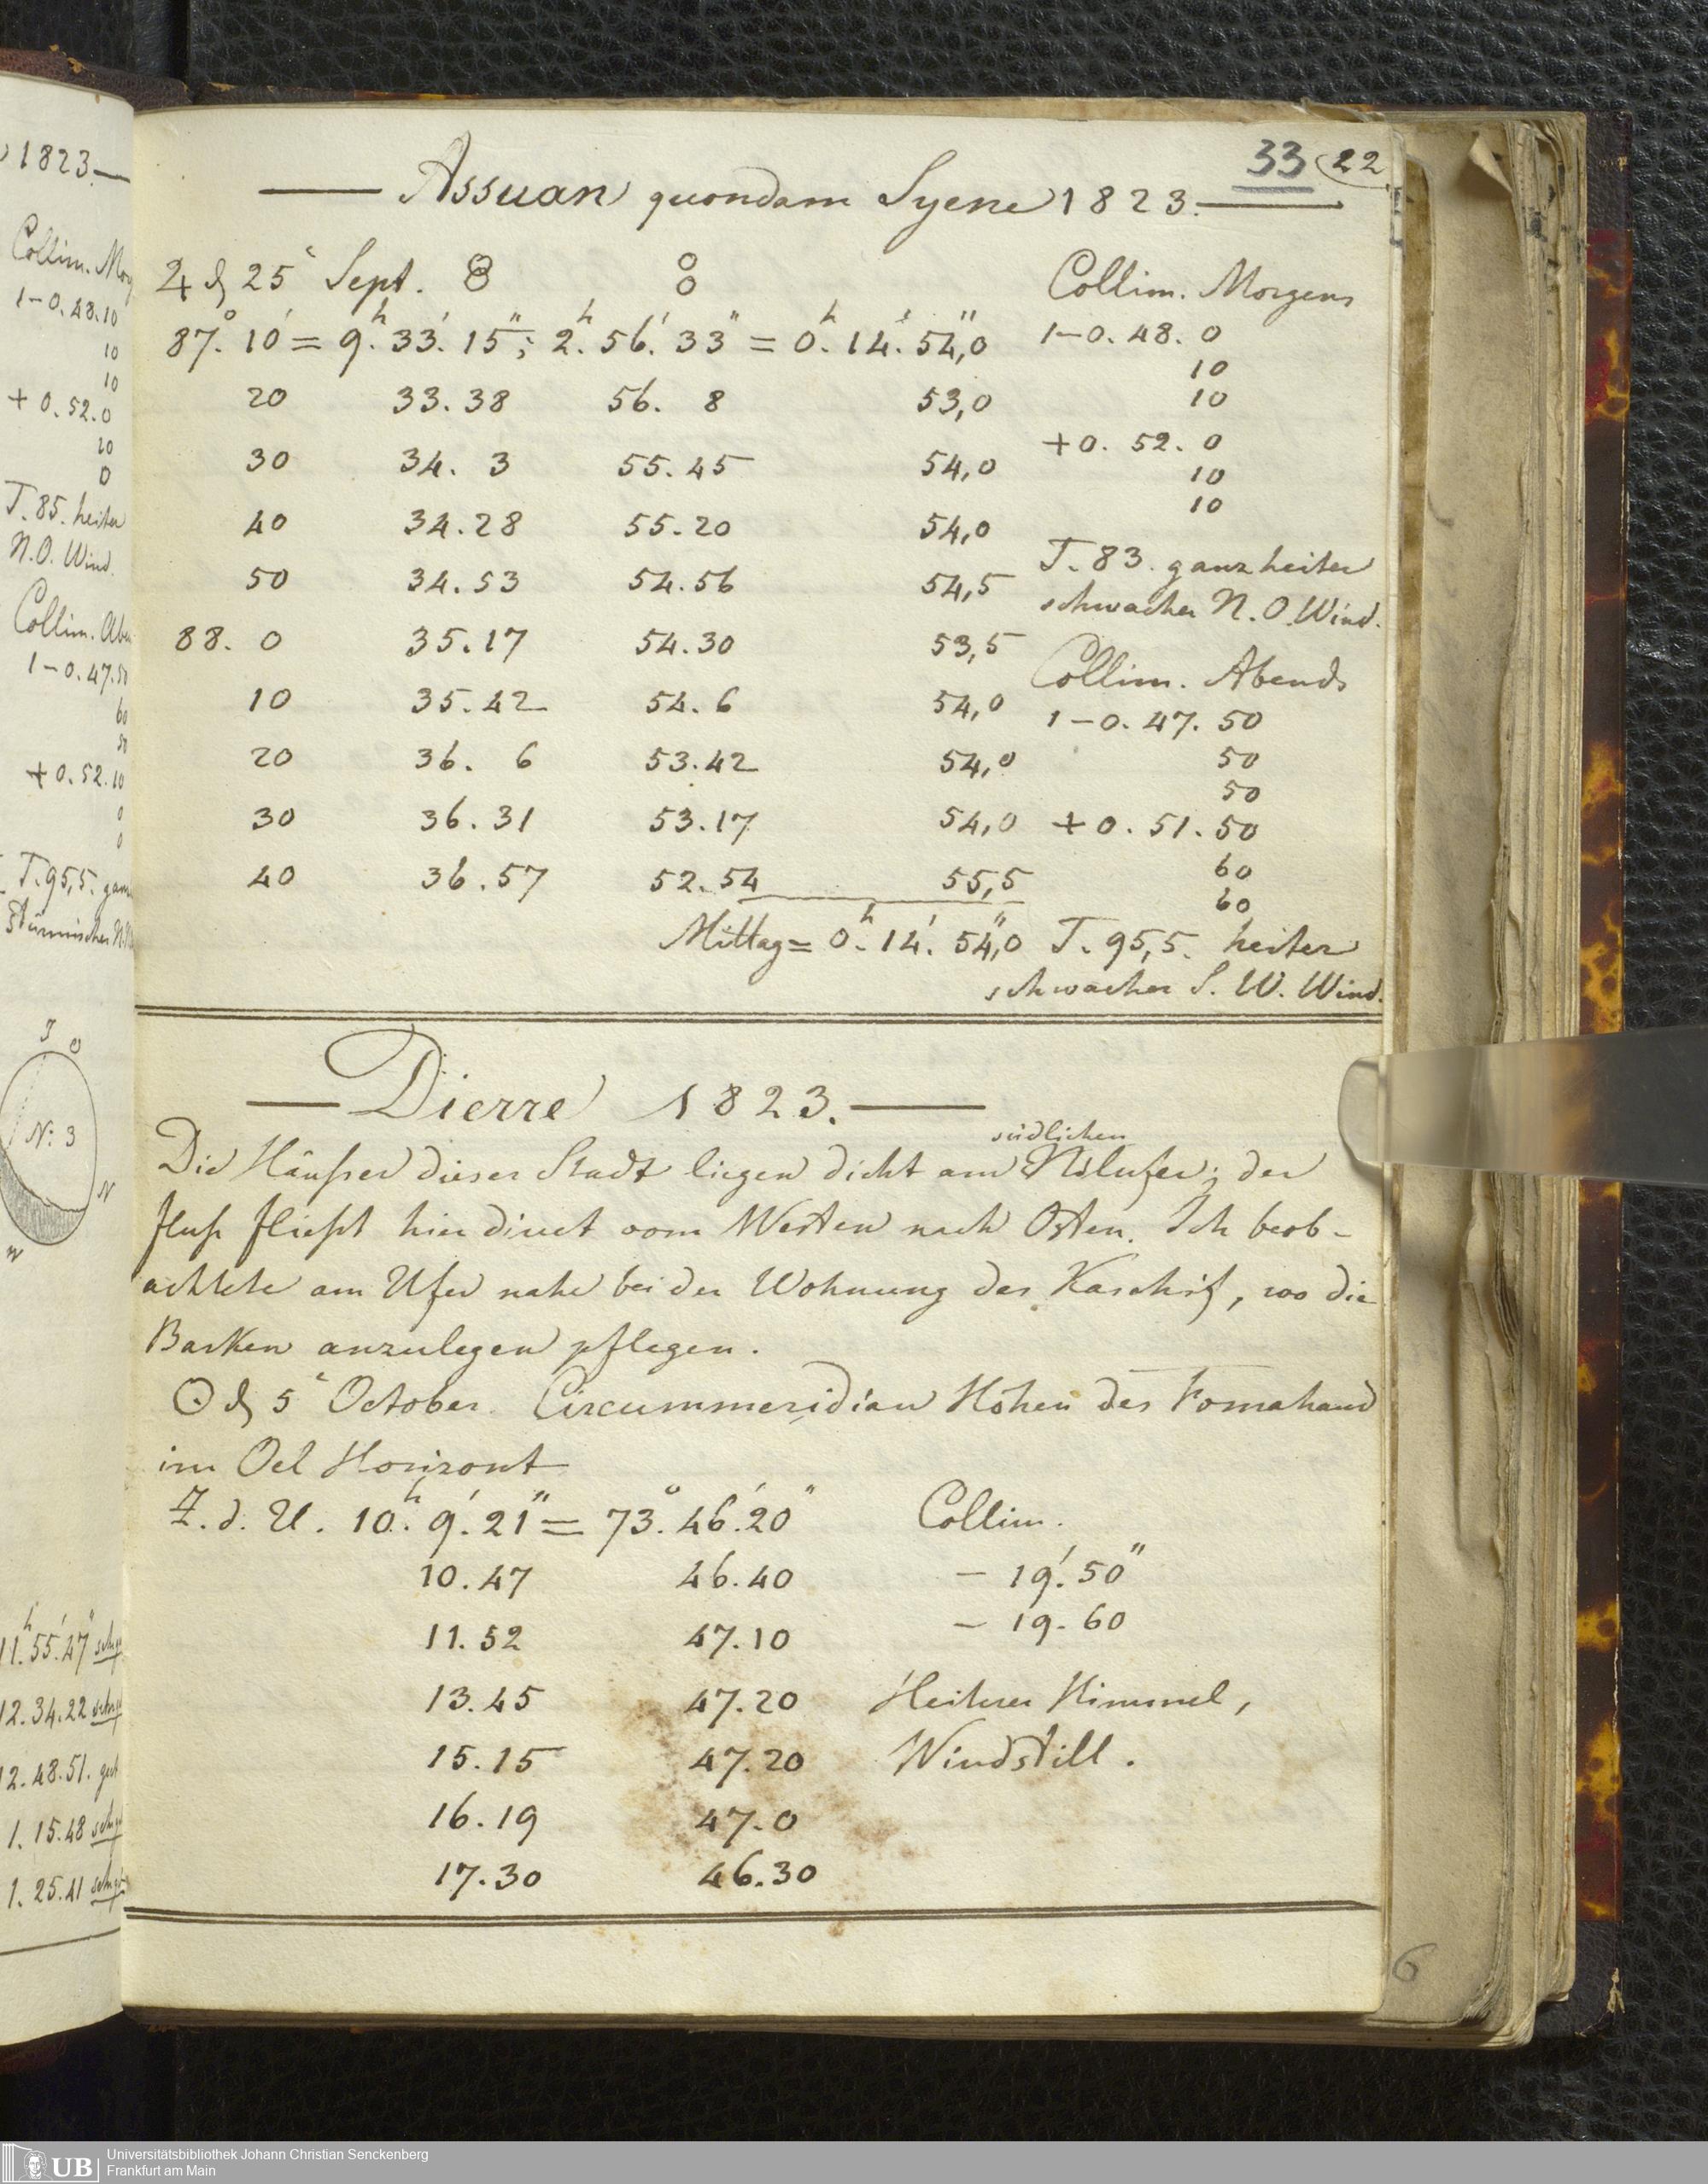 33 22
Assuan quondam Syene 1823.
♃ d 25 Sept.
Collim. Morgens
87.° 10' = 9.h 33.' 15"; 2.h 56.' 33" = 0.h 14.' 54,"0
1-0. 48. 0
10
20 33. 38 56. 8 53,0
10
+0. 52. 0
30 34. 3 55. 45 54,0
10
10
40 34. 28 55. 20 54,0
T. 83. ganz heiter
50 34. 53 54. 56 54,5
schwacher N. O. Wind.
88. 0 35. 17 54. 30 53,5
Collim. Abends
10 35. 42 54. 6 54,0
1-0. 47. 50
20 36. 6 53. 42 54,0
50
50
30 36. 31 53. 17 54,0
+0. 51. 50
60
40 36. 57 52. 54 55,5
60
Mittag = 0.h 14.' 54,"0
T. 95,5. heiter
schwacher S. W. Wind.
Dierre 1823.
südlichen
Die Häußer dieser Stadt liegen dicht am Nilufer; der
fluß fließt hier direct vom Westen nach Osten. Ich beob-
achtete am Ufer nahe bei der Wohnung des Kaschif, wo die
Barken anzulegen pflegen.
☉ d 5 October. Circummeridian Höhen des Fomahand
im Oel Horizont
Z. d. U. 10.h 9.' 21" = 73.° 46.' 20"
Collim.
10. 47 46. 40
- 19.' 50"
11. 52 47. 10
- 19. 60
13. 45 47. 20
Heiterer Himmel,
15. 15 47. 20
Windstill.
16. 19 47. 0
17. 30 46. 30
6
1823.
Collim.
1-0. 48. 10
10
10
+ 0. 52. 0
10
0
T. 85. heiter
N. O. Wind.
Collim.
1-0. 47. 50
60
50
+ 0. 52. 10
0
0
T. 95,5.
N: 3
N
11.h 55.' 47"
12. 34. 22
12. 48. 51.
1. 15. 48
1. 25. 41
UB Universitätsbibliothek Johann Christian Senckenberg
Frankfurt am Main